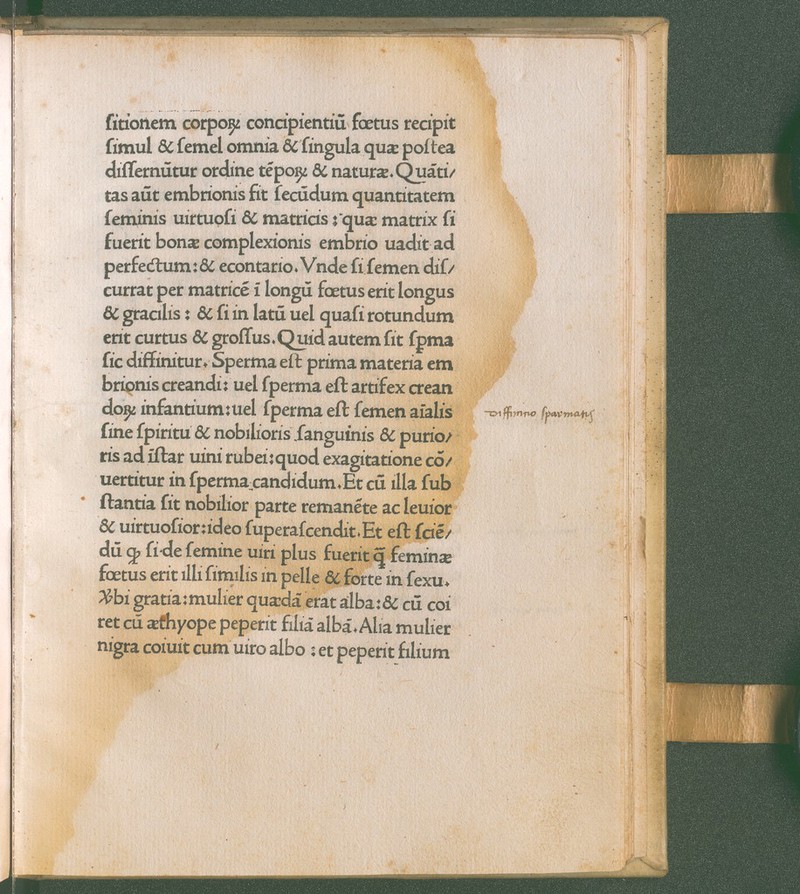 ſitionem corpoꝝ concipientiū fœtus recipit
ſimul & ſemel omnia & ſingula quæ poſtea
diſſernūtur ordine tēpoꝝ & naturæ. Quāti/
tas aūt embrionis fit ſecūdum quantitatem
ſeminis uirtuoſi & matricis : quæ matrix ſi
fuerit bonæ complexionis embrio uadit ad
perfectum: & econtario. Vnde ſi ſemen diſ/
currat per matricē ī longū fœtus erit longus
& gracilis : & ſi in latū uel quaſi rotundum
erit curtus & groſſus. Quid autem ſit ſpma
ſic diffinitur. Sperma eſt prima materia em
brionis creandi: uel ſperma eſt artifex crean
doꝝ infantium: uel ſperma eſt ſemen aīalis
ſine ſpiritu & nobilioris ſanguinis & purio/
ris ad īſtar uini rubei: quod exagitatione cō/
uertitur in ſperma candidum. Et cū illa ſub
ſtantia ſit nobilior parte remanēte ac leuior
& uirtuoſior: ideo ſuperaſcendit. Et eſt ſciē/
dū ꝙ ſi de ſemine uiri plus fuerit q̄̄ feminæ
fœtus erit illi ſimilis in pelle & forte in ſexu.
Vbi gratia: mulier quædā erat alba: & cū coi
ret cū æthyope peperit filiā albā. Alia mulier
nigra coiuit cum uiro albo : et peperit filium
Diffinitio ſparmatis